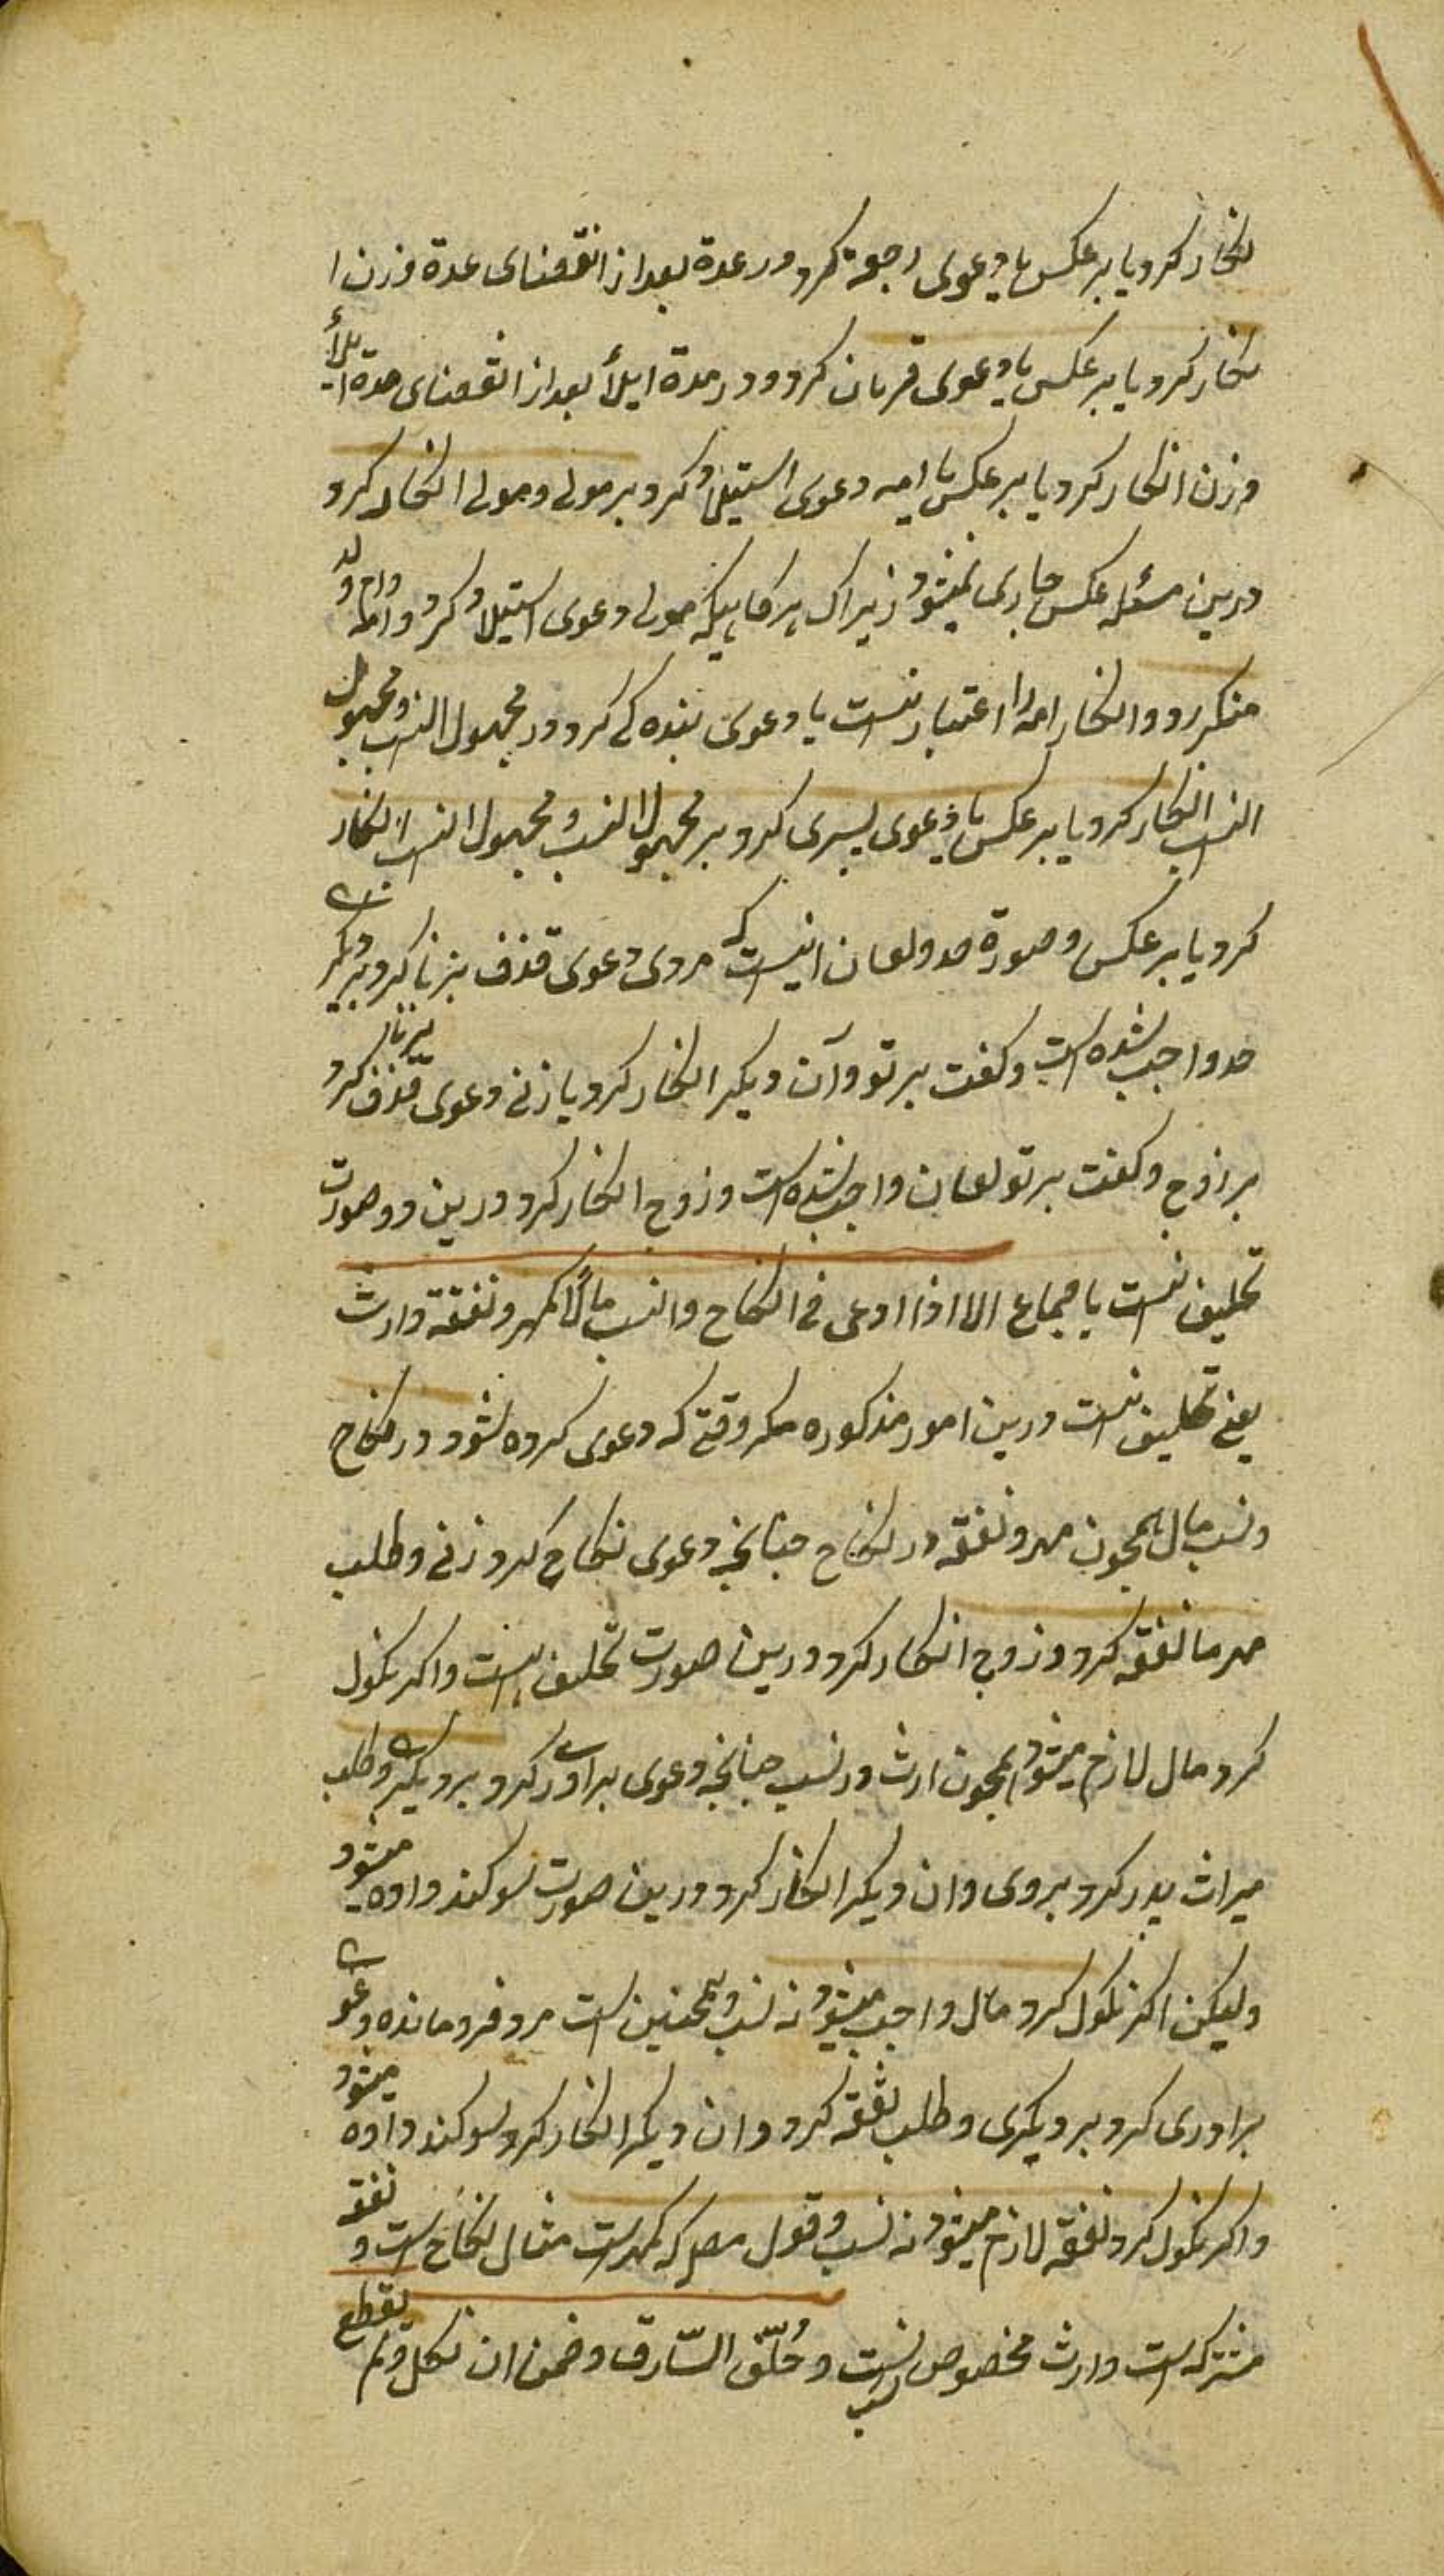 نکار کرد یا بر عکس یا دعوی رجعة کرد در عدة بعد از انقضای عدة و زن ا
نکار کرد یا بر عکس یا دعوی قربان کرد و در مدة ایلأ بعد از انقضای مدة ایلأ
و زن انکار کرد یا بر عکس یا امه دعوی استیلاد کرد بر مولی و مولی انکار کرد
درین مسئله عکس جاری نمیشود زیراک هرگاهیکه مولی دعوی استیلاد کرد و ام ولد
منکر بود و انکار امه را اعتبار نیست یا دعوی بنده کی کرد در مجهول النسب و مجهول
النسب انکار کرد یا بر عکس یا دعوی پسری کرد بر مجهول النسب و مجهول النسب انکار
کرد یا بر عکس و صورة حد و لعان اینست که مردی دعوی قذف بزنا کرد بر دیگری
حد واجب شده است و گفت بر تو و آن دیگر انکار کرد یا زنی دعوی قذف بزنا کرد
بر زوج و گفت بر تو لعان واجب شده است و زوج انکار کرد درین دو صورت
تحلیف نیست باجماع الا اذا ادعی فی النکاح والنسب مالاً کمهر و نفقة وارث
یعنی تحلیف نیست درین امور مذکوره مگر وقتی که دعوی کرده شود در نکاح
و نسب مال همچون مهر و نفقه در نکاح چنانچه دعوی نکاح کرد زنی و طلب
مهر یا نفقه کرد و زوج انکار کرد درین صورت تحلیف هست و اگر نکول
کرد مال لازم میشود همچون ارث در نسب چنانچه دعوی برادری کرد بر دیگری و طلب
میراث پدر کرد بر وی و ان دیگر انکار کرد درین صورت سوکند داده میشود
ولیکن اگر نکول کرد مال واجب میشود نه نسب و همچنین است مرد فرو مانده دعوی
برادری کرد بر دیگری و طلب نفقه کرد و ان دیگر انکار کرد سوکند داده میشود
و اگر نکول کرد نفقه لازم میشود نه نسب و قول مص که کمهرست مثال نکاح است و نفقه
مشترکه است وارث مخصوص نسب است و حُلّف السّارق و ضمن ان نکل و لم یقطع